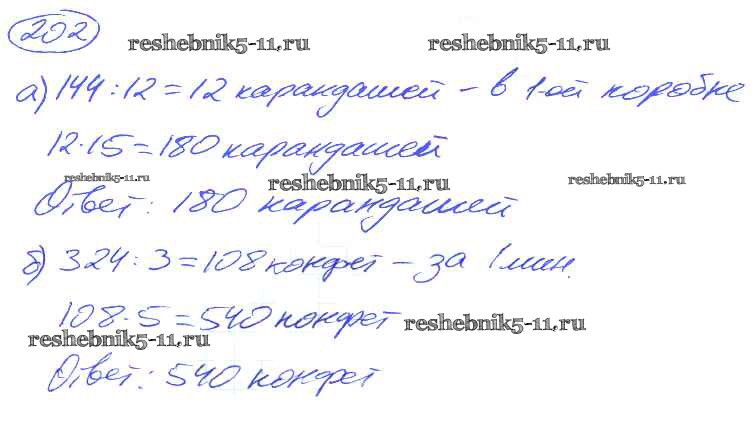 202
reshebnik5-11.ru reshebnik5-11.ru
а) 144 : 12 = 12 карандашей – в 1-ой коробке
12 · 15 = 180 карандашей
reshebnik5-11.ru reshebnik5-11.ru reshebnik5-11.ru
Ответ: 180 карандашей
б) 324 : 3 = 108 конфет – за 1 мин.
108 · 5 = 540 конфет reshebnik5-11.ru
reshebnik5-11.ru
Ответ: 540 конфет